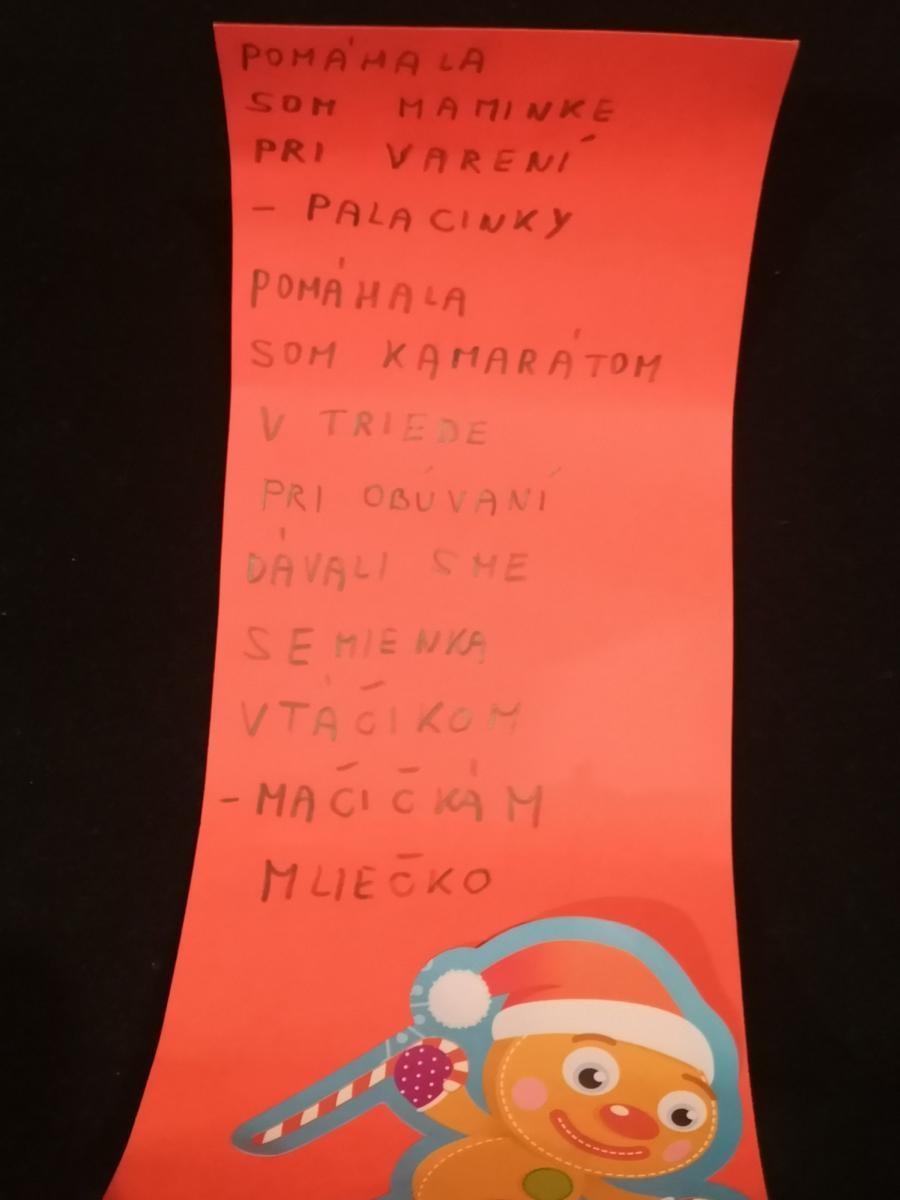 POMÁHALA
SOM MAMINKE
PRI VARENÍ
- PALACINKY
POMÁHALA
SOM KAMARÁTOM
V TRIEDE
PRI OBÚVANÍ
DÁVALI SME
SEMIENKA
VTÁČIKOM
- MAČIČKÁM
MLIEČKO